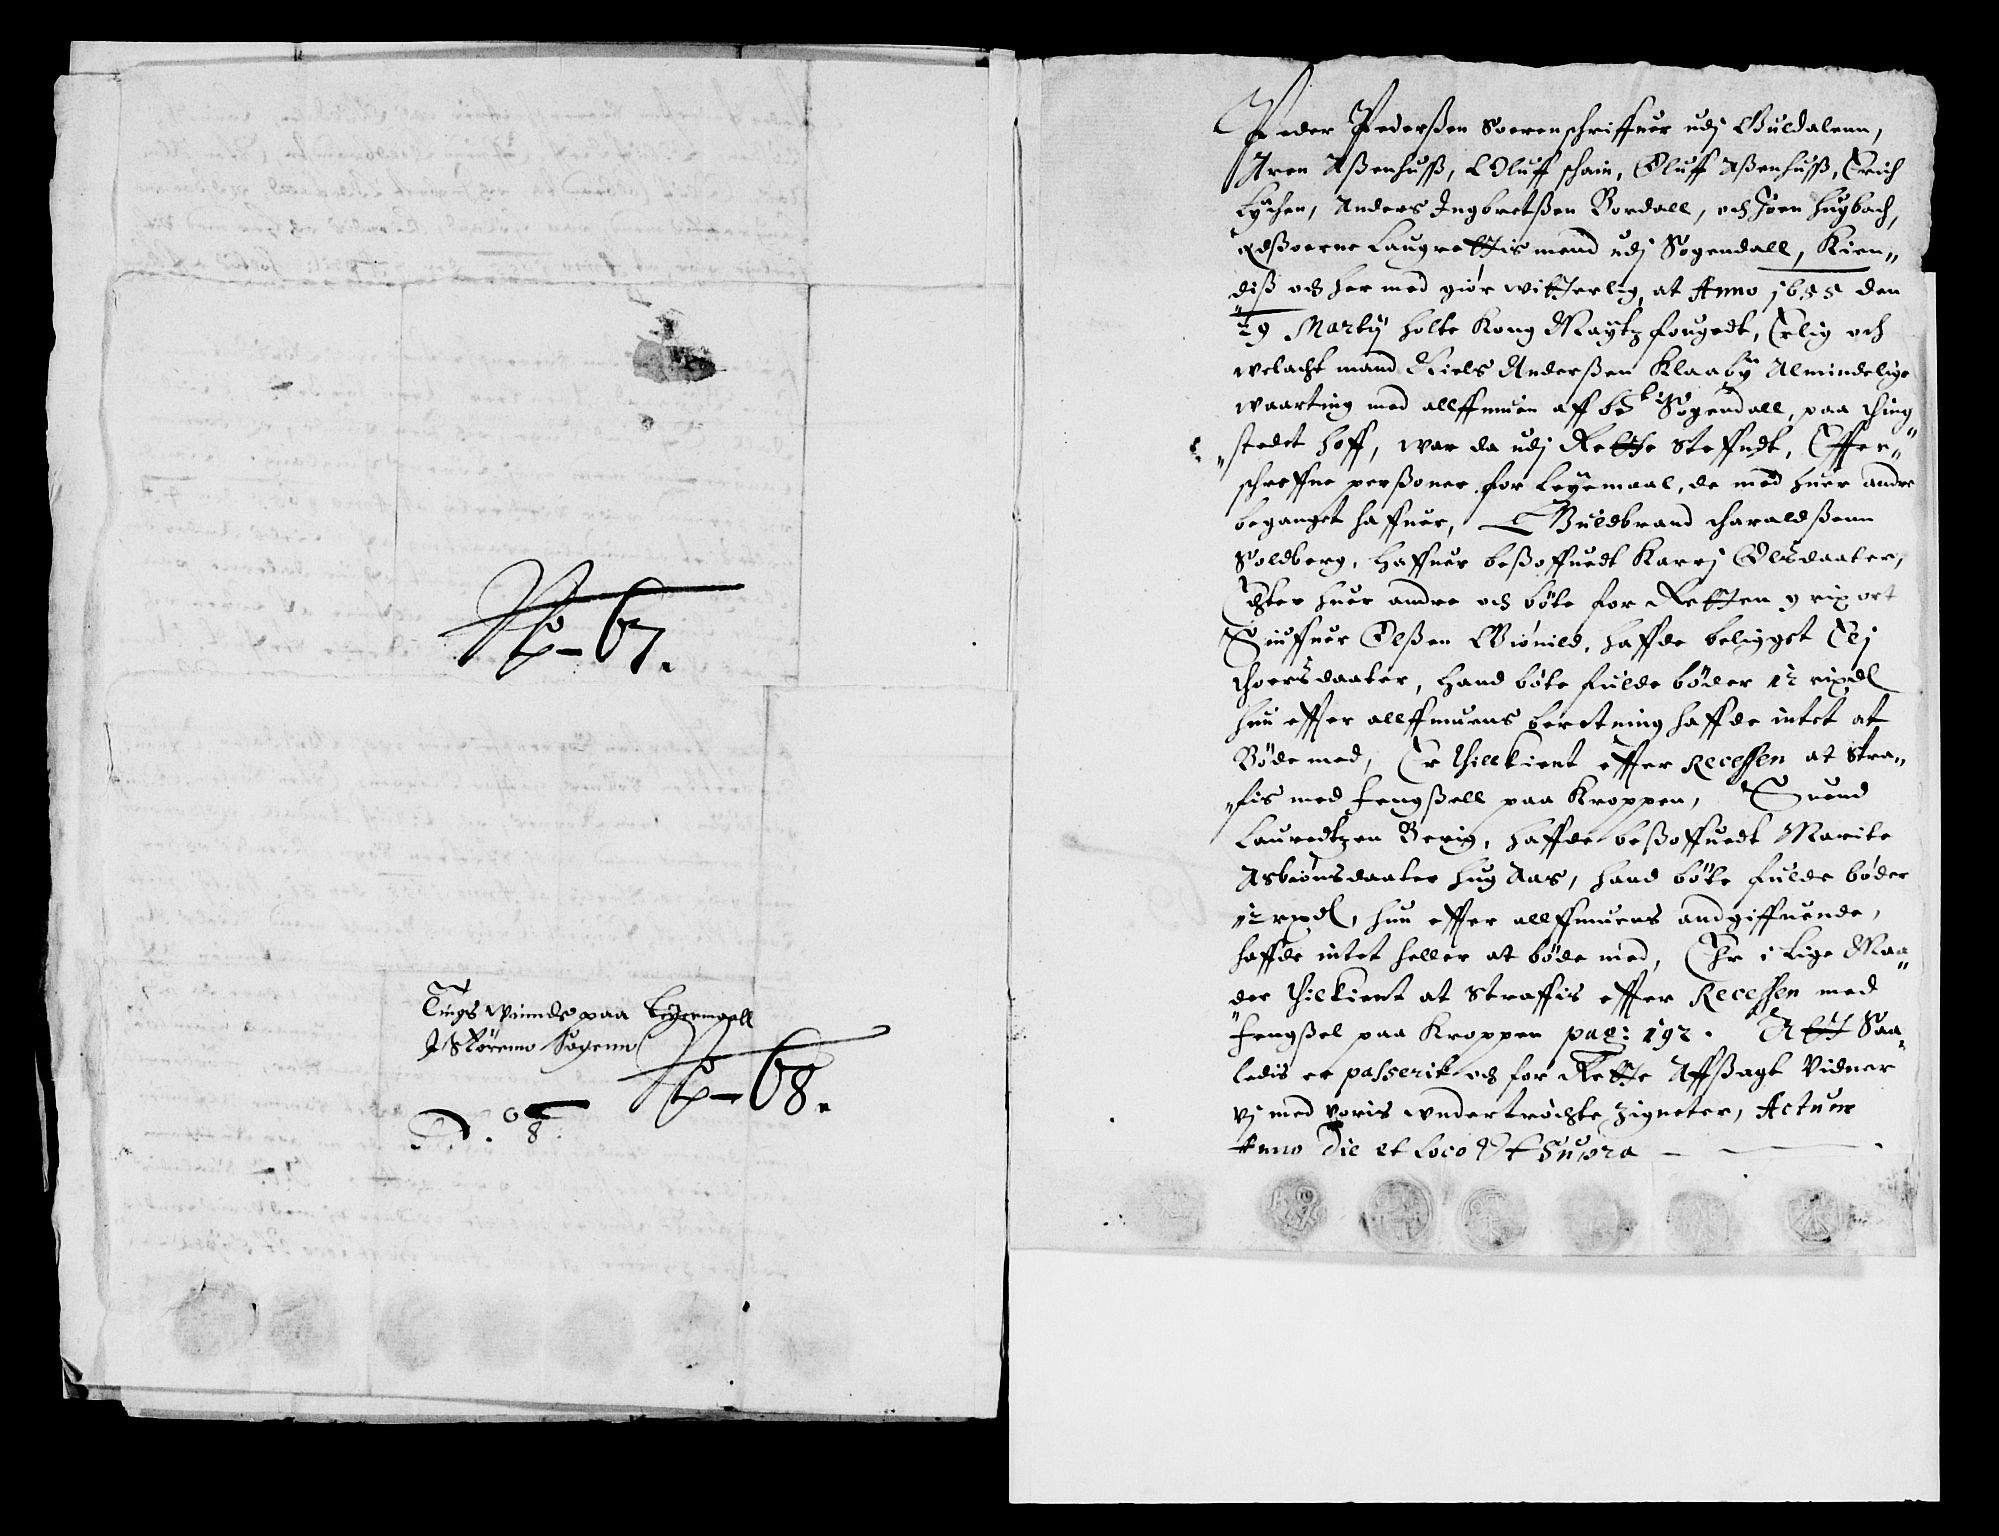 No 67.
Tings winde paa Leyermaall
I Störenn Sogenn
No 68.
8
Peder Pederßen Sorenschriffuer udj Guldalenn,
Aren Aßenhuß, Oluff schain, Oluff Aßenhuß, Erich
Lychen, Anders Ingbretßen Bordall, och Joen Hugbach,
Edßoerne Laugrettis mend udj Sogendall, Kien„
„diß och her med giör witterlig, at Anno 1655 den
29 Martij holte Kong Maytz fougedt, Erlig och
welacht mand Niels Anderßen Klaaby Almindelige
waarting med allffmuen aff bete Sogendall, paa thing„
„stedet hoff, war da udj Rette Steffndt, Effter„
schreffne perßoner for Leyemaal, de med huer andre
beganget haffuer, Guldbrand Haraldßenn
Soldberg, Haffuer beßoffuedt Karrj Olsdaater,
Echter huer andre och böte for Retten 9 rix ort
Siuffuer Olßen Giönild, haffde beligget Elj
thoersdaater, Hand böte fulde böder 12 rixdl
hun effter allffmuens beretning haffde intet at
Böde med, Er thillkient effter Recessen at Stra„
„fis med fengßell paa Kroppen, Suend
Lauredtzen Berig, haffde beßoffuedt Marite
Asbiönsdaater Hug Aas, hand böte fulde böder
12 rixdl, hun effter allffmuens andgiffuende,
haffde intet heller at böde med, Ehr i Lige Maa„
„der thilkient at Straffis effter Recessen med
fengßel paa Kroppen pag: 192. At Saa„
ledis er passerit och for Rette Affßagt Vidner
vj med voris wndertröchte Zigneter, Actum
Anno Die et Loco Ut Supra